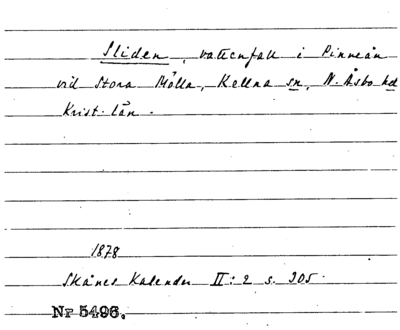 Sliden, vattenfall i Pinneån
vid Stora Mölla, Källna sn, N. Åsbo hd
Krist. län.
1878
Skånes Kalender II:2 s. 205.
Nr 5496.